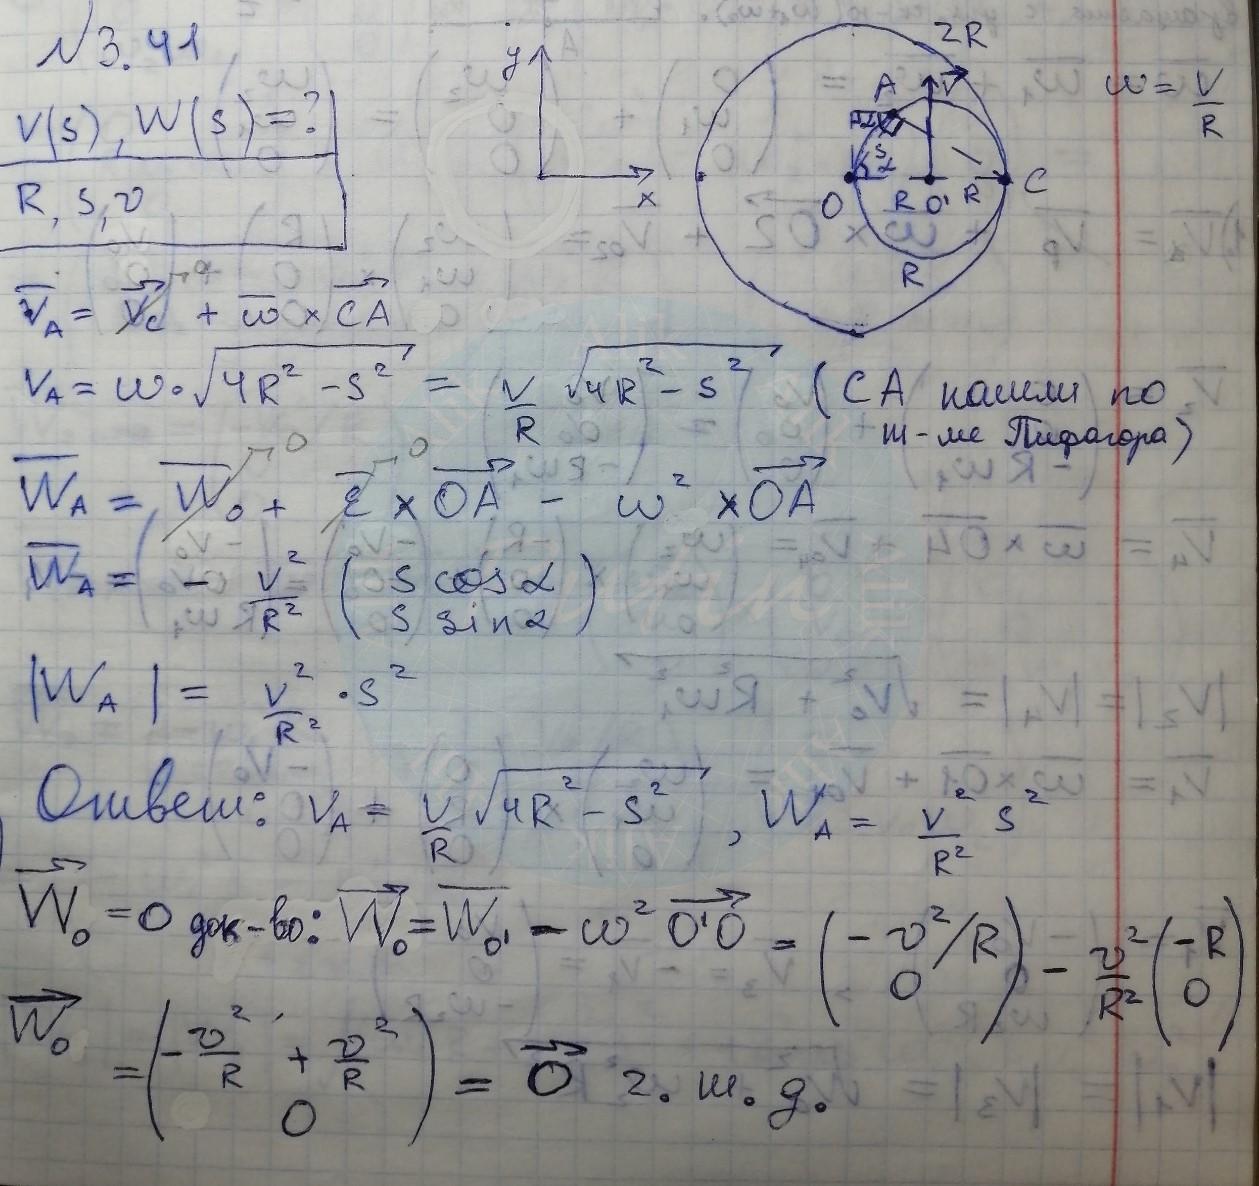 N3.41
V(s), W(s)=?
R, s, v
y
x
2R
A
V
s
α
O
R O' R
C
R
ω = V/R
V̅_A = V⃗_c→0 + ω̅ × C⃗A⃗
V_A = ω·√(4R² - s²) = V/R √(4R² - s²) (CA нашли по
т-ме Пифагора)
W̅_A = W̅_O→0 + ε̅→0 × O⃗A⃗ - ω² × O⃗A⃗
W̅_A = - V²/R² (s cosα
s sinα)
|W_A| = V²/R² · s²
Ответ: V_A = V/R √(4R² - s²), W_A = V²/R² s²
W⃗_O = 0 док-во: W⃗_O = W̅_O' - ω² O⃗'O⃗ = (-v²/R
0) - v²/R² (-R
0)
W⃗_O = (-v²/R + v²/R
0) = 0⃗ г. т. д.